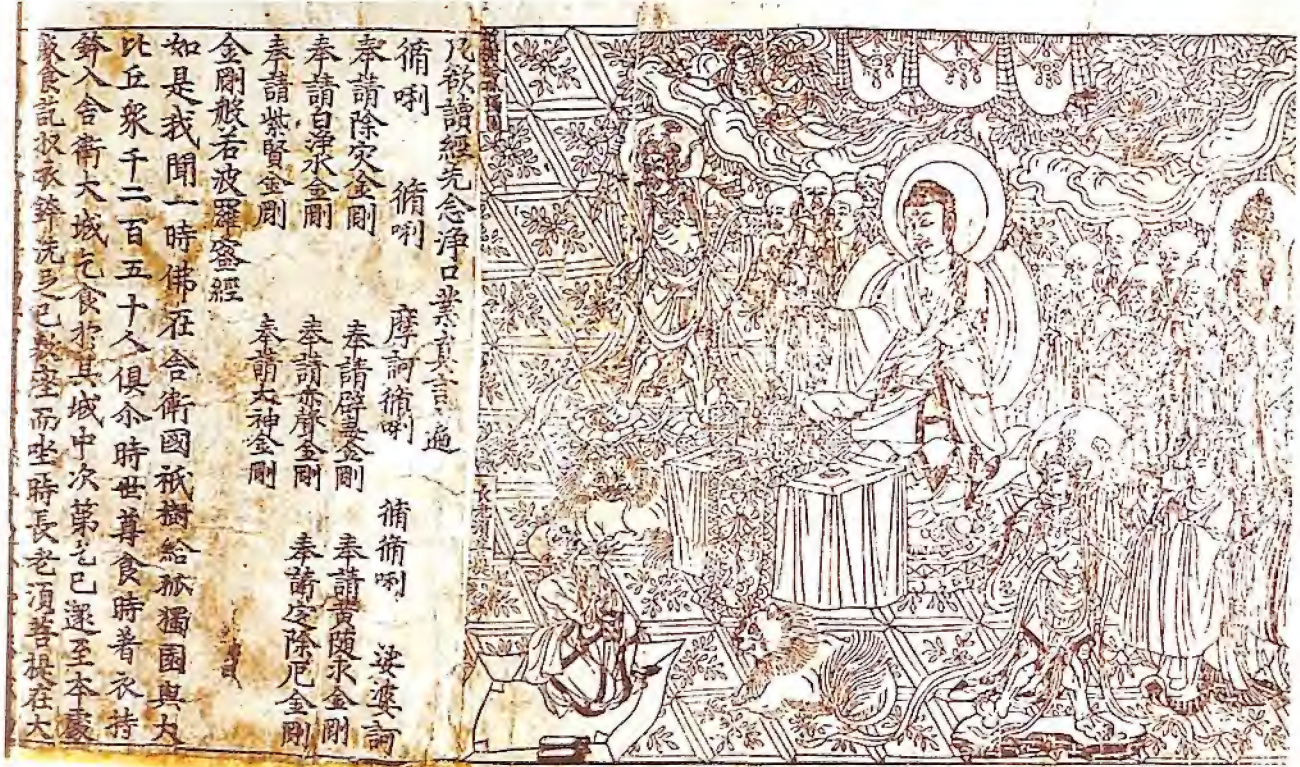 凡欲讀經先念淨口業真言遍
脩唎 脩唎 摩訶脩唎 脩脩唎 娑婆訶
奉請除灾金剛 奉請辟毒金剛 奉請黄随求金剛
奉請白淨水金剛 奉請赤聲金剛 奉請定除厄金剛
奉請紫賢金剛 奉請大神金剛
金剛般若波羅蜜經
如是我聞一時佛在舍衛國祇樹給孤獨園與大
比丘衆千二百五十人俱尒時世尊食時着衣持
鉢入舍衛大城乞食於其城中次第乞已還至本處
飯食訖收衣鉢洗足已敷座而坐時長老須菩提在大